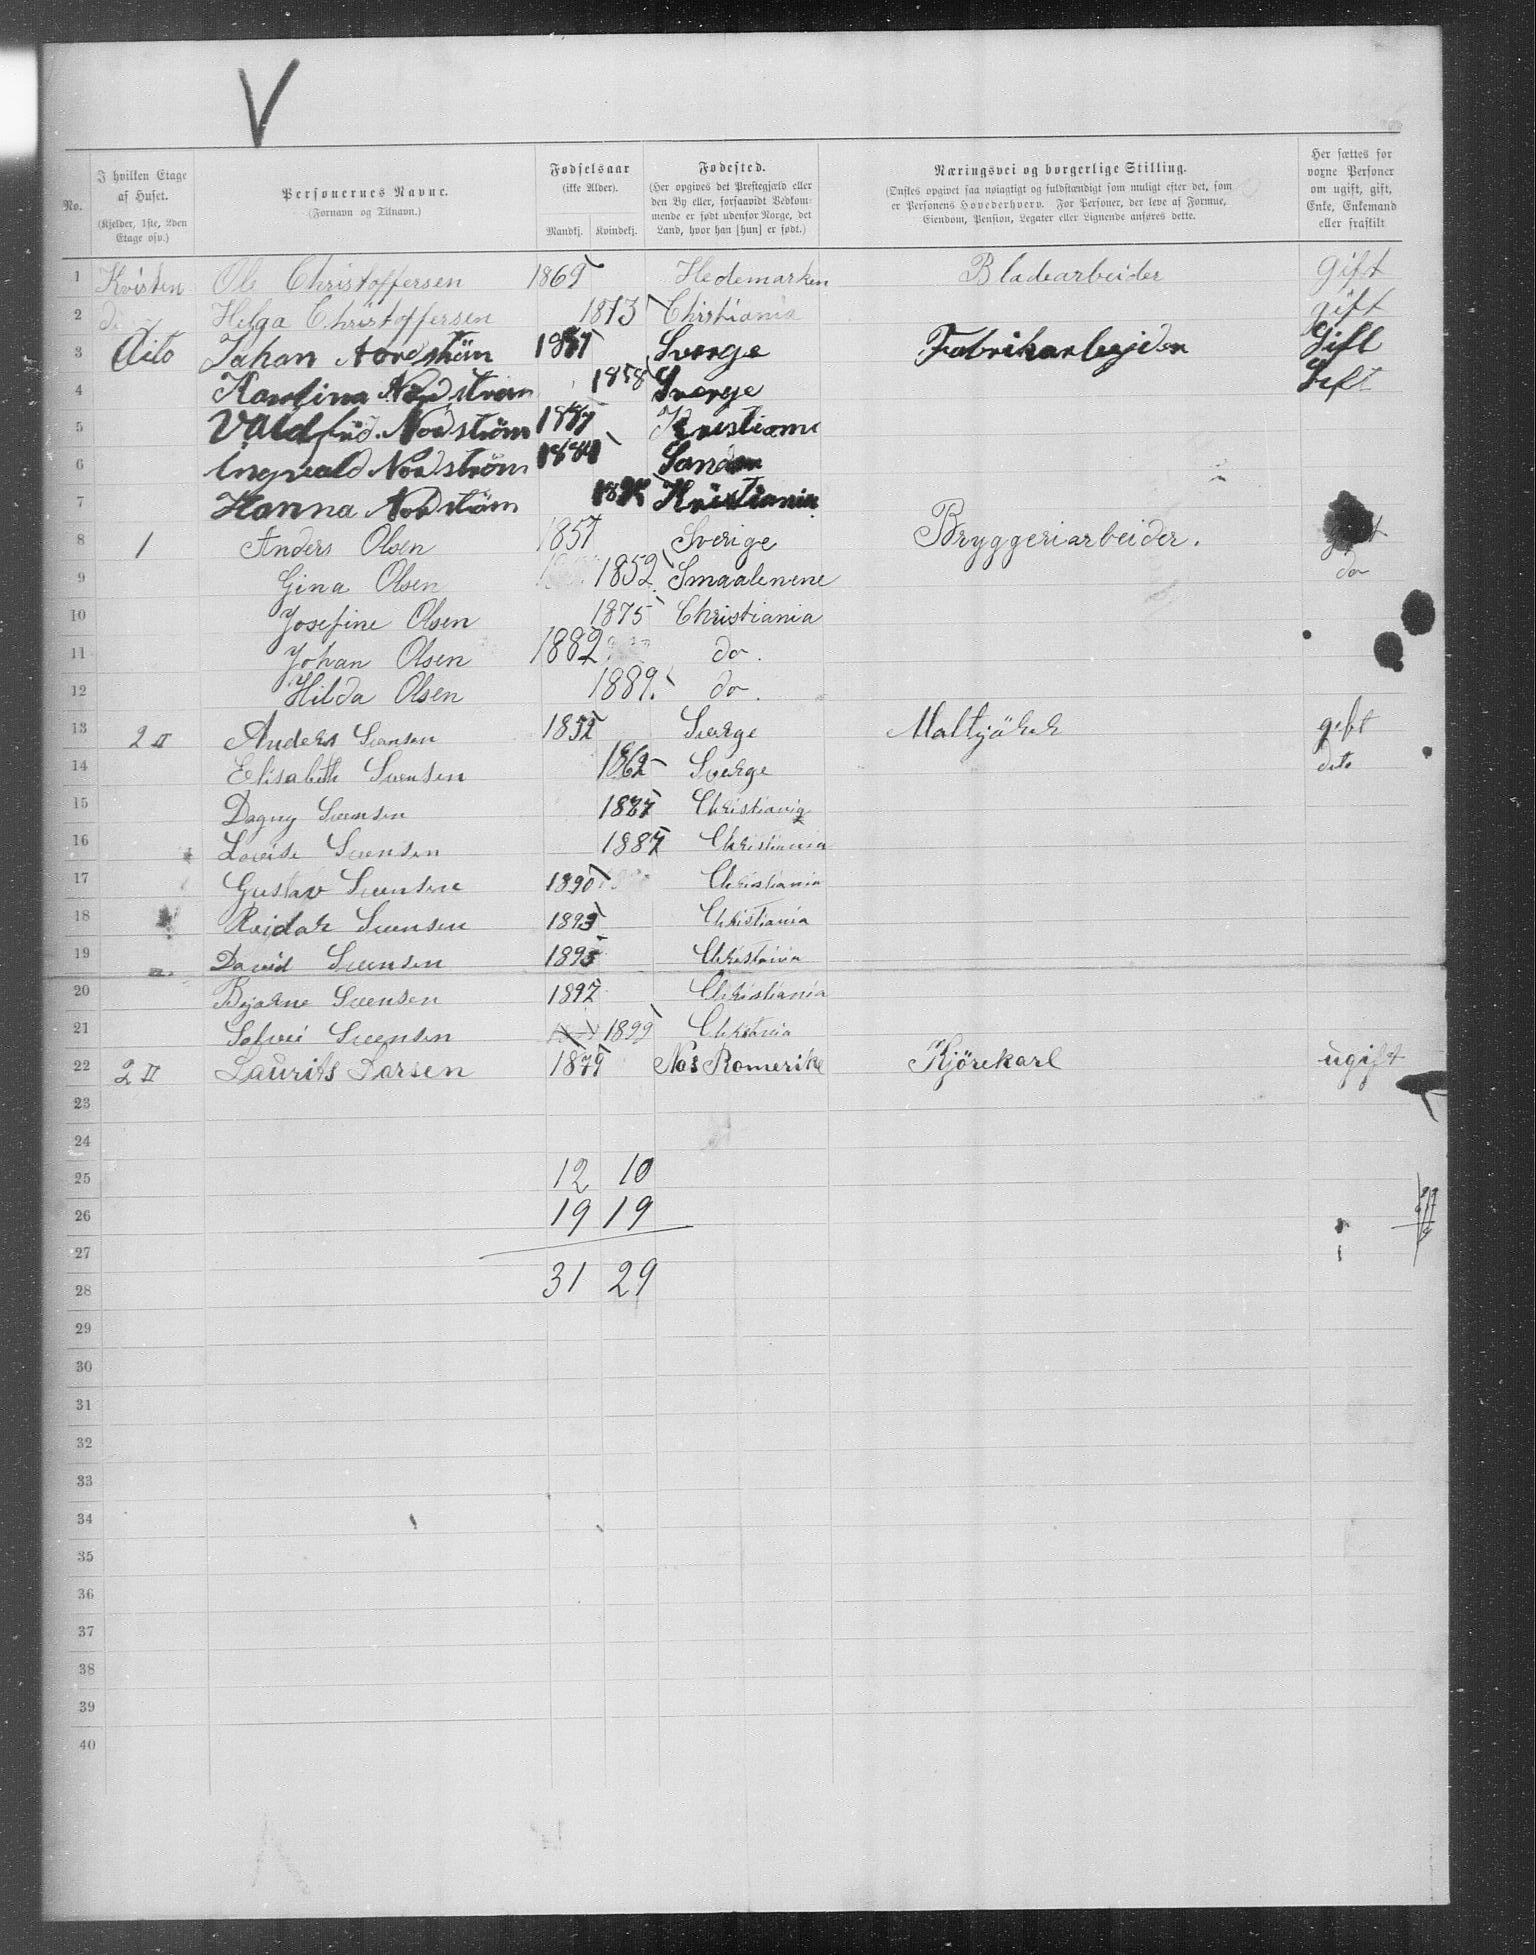 V
No.
I hvilken Etage af Huset. (Kjelder, 1ste, 2den Etage osv.)
Personernes Navne. (Fornavn og Tilnavn.)
Fødselsaar (ikke Alder). Mandkj. Kvindekj.
Fødested. (Her opgives det Prestegjæld eller den By eller, forsaavidt Vedkommende er født udenfor Norge, det Land, hvor han [hun] er født.)
Næringsvei og borgerlige Stilling. (Ønskes opgivet saa nøiagtigt og fuldstændigt som muligt efter det, som er Personens Hovederhverv. For Personer, der leve af Formue, Eiendom, Pension, Legater eller Lignende anføres dette.
Her sættes for voxne Personer om ugift, gift, Enke, Enkemand eller fraskilt
1 Kvisten Ole Christoffersen 1869 Hedemarken Bladearbeider gift
2 Helga Christoffersen 1873 Christiania gift
3 Dito Johan Nordström 1857 Sverge Fabrikarbejder Gift
4 Karolina Nordström 1858 Sverge Gift
5 Nordström 1887 Kristiania
6 Ingvald Nordström 1884
7 Hanna Nordström Kristiania
8 1 Anders Olsen 1857 Sverige Bryggeriarbeider.
9 Gina Olsen 1852 Smaalenene do
10 Josefine Olsen 1875 Christiania
11 Johan Olsen 1882 do.
12 Hilda Olsen 1889. do.
13 2 II Anders Svensen 1852 Sverge Maltgjörer gift
14 Elisabeth Svensen 1862 Sverge dito
15 Dagny Svensen 1887 Christiania
16 Lovise Svensen 1887 Christiania
17 Gustav Svensen 1890 Christiania
18 Reidar Svensen 1893 Christiania
19 David Svensen 1895 Christiania
20 Bjarne Svensen 1897 Christiania
21 Solvei Svensen 1899 Christiania
22 2 II Laurits Larsen 1879 Nes Romerike Kjörekarl ugift
23
24
25 12 10
26 19 19
27
28 31 29
29
30
31
32
33
34
35
36
37
38
39
40